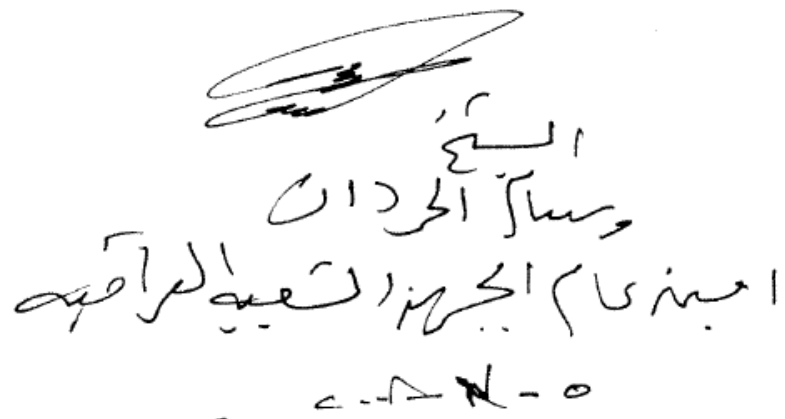 الشيخ
وسام الحردان
امين عام الجبهة الشعبية العراقية